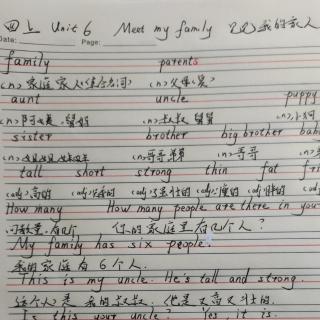 四上 Unit 6 Meet my family 见见我的家人
Date: Page:
family parents
<n>家庭家人(集合名词) <n>父母(复)
aunt uncle puppy
<n>阿姨,婶婶 <n>叔叔 舅舅 <n>小狗
sister brother big brother
<n>姐姐妹妹 <n>哥哥弟弟 <n>哥哥
tall short strong thin fat
<adj>高的 <adj>矮的 <adj>强壮的 <adj>瘦的 <adj>胖的
How many How many people are there in
可数复:有几个 你的家庭里有几个人?
My family has six people.
我的家庭有6个人.
This is my uncle. He's tall and strong.
这个人是我的叔叔,他是又高又壮的.
Is this your uncle? Yes, it is.